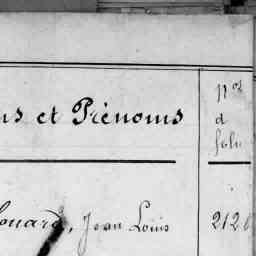 ns et Prénoms
Nos
d
folio
ouard, Jean Louis
212